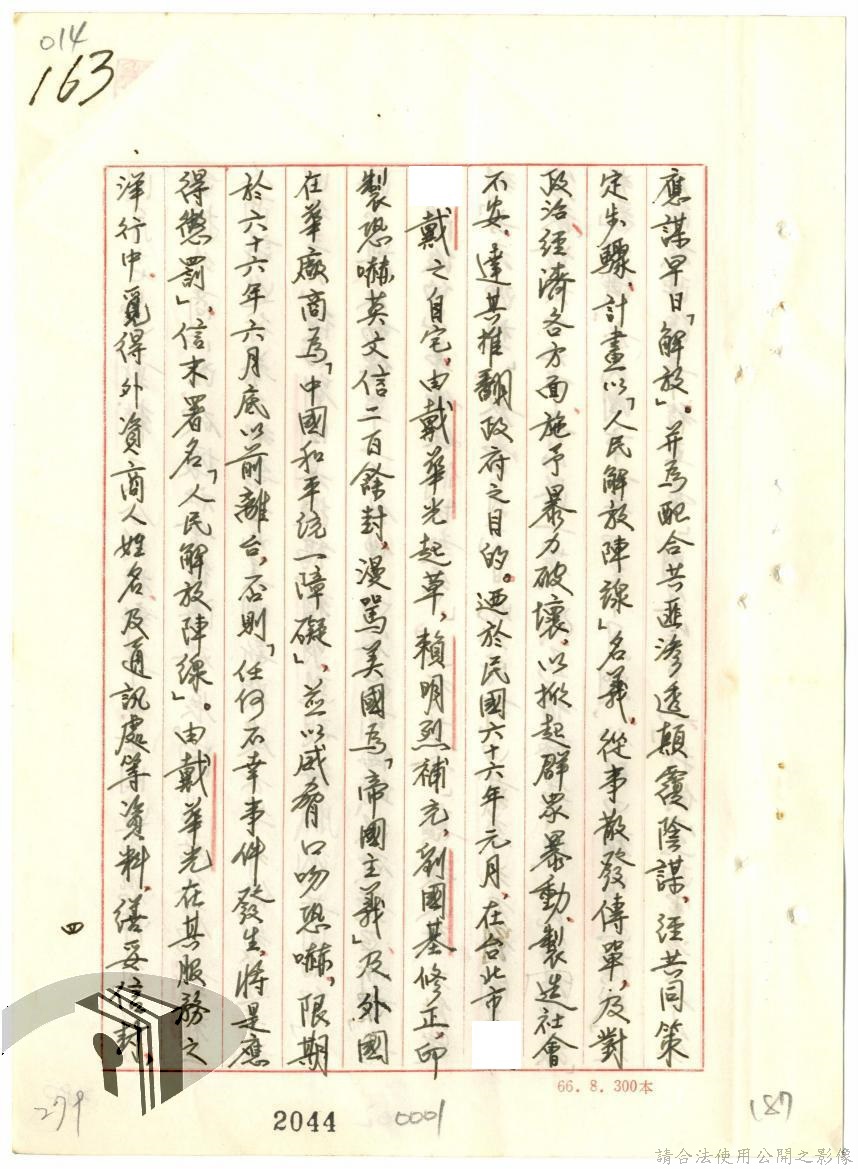 014
163
應謀早日「解放」。并為配合共匪滲透顛覆陰謀，經共同策
定步驟，計畫以「人民解放陣線」名義，從事散發傳單，及對
政治經濟各方面施予暴力破壞，以掀起群眾暴動，製造社會
不安，達其推翻政府之目的。迺於民國六十六年元月，在台北市
戴之自宅，由戴華光起草，賴明烈補充，劉國基修正，印
製恐嚇英文信二百餘封，漫罵美國為「帝國主義」及外國
在華廠商為「中國和平統一障礙」，並以威脅口吻恐嚇，限期
於六十六年六月底以前離台，否則「任何不幸事件發生，將是應
得懲罰」，信末署名「人民解放陣線」。由戴華光在其服務之
洋行中覓得外資商人姓名及通訊處等資料，繕妥信封，
四
66.8.300本
279
2044
0001
187
請合法使用公開之影像